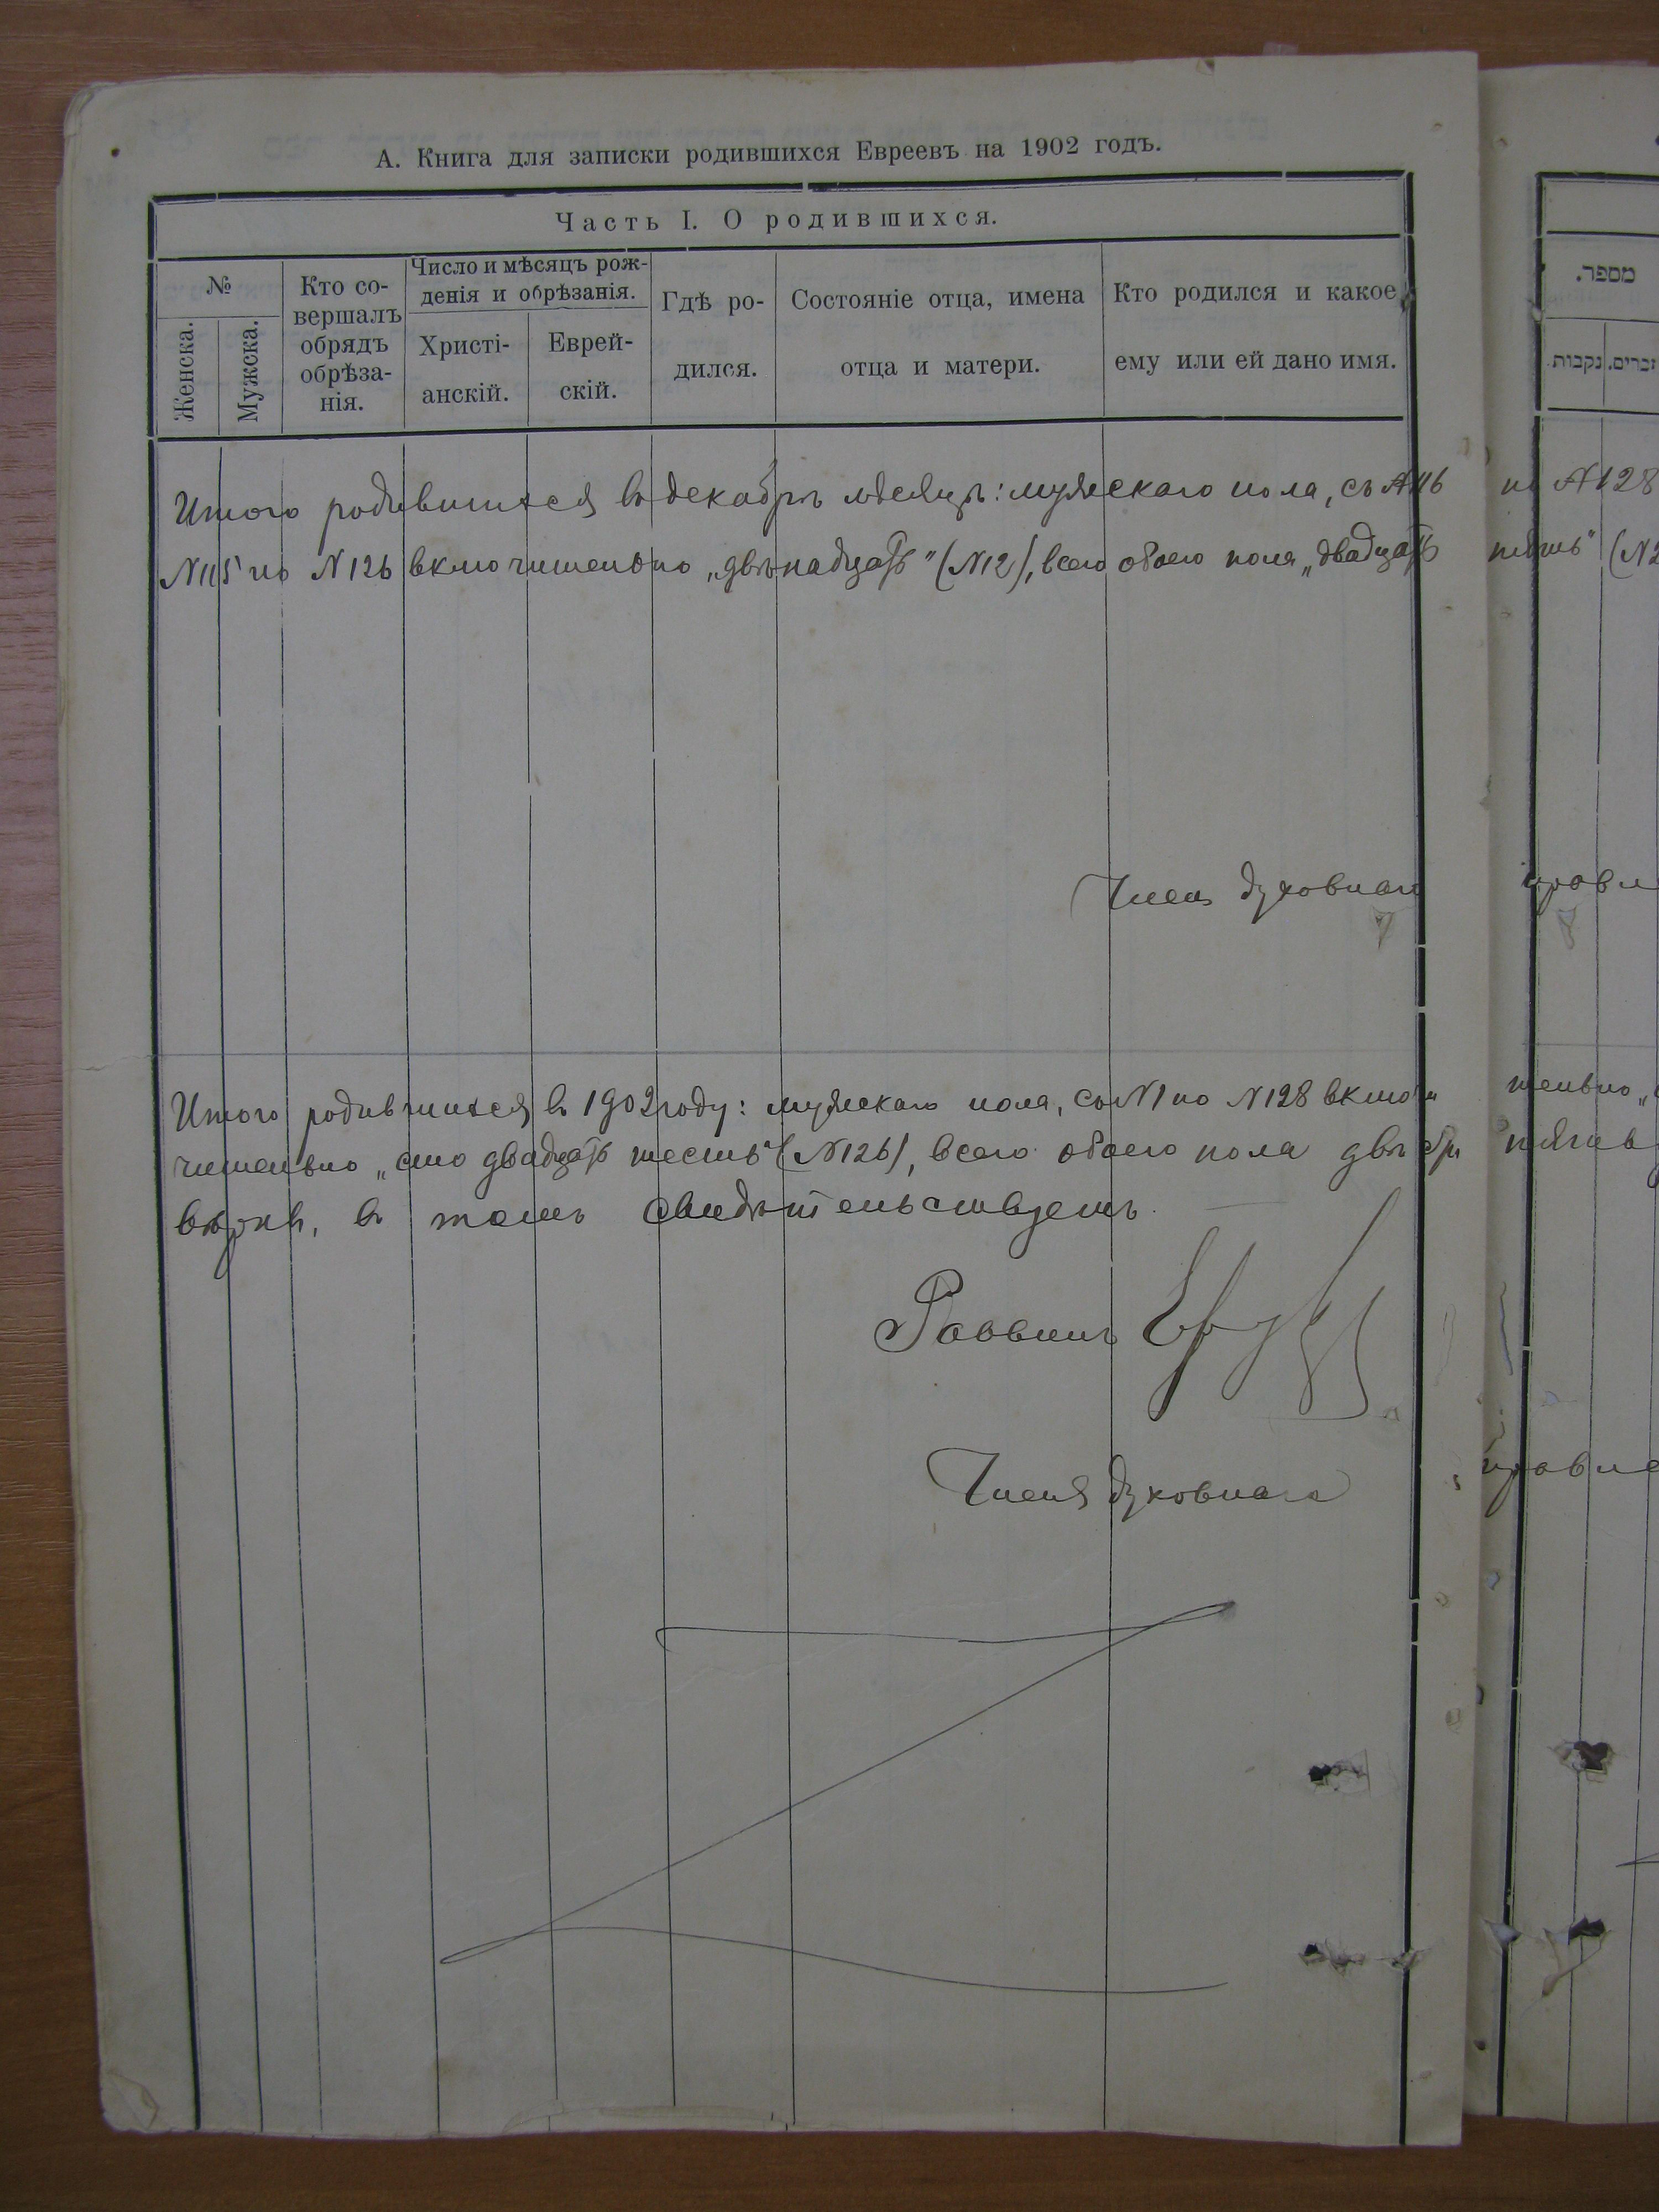 А. Книга для записки родившихся Евреевъ на 1902 годъ.
Часть I. О родившихся.
№
Женска.
Мужска.
Кто со-
вершалъ
обрядъ
обрѣза-
нія.
Число и мѣсяцъ рож-
денія и обрѣзанія.
Христі-
анскій.
Еврей-
скій.
Гдѣ ро-
дился.
Состояніе отца, имена
отца и матери.
Кто родился и какое
ему или ей дано имя.
מספר.
זכרים.
נקבות.
Итого родившихся въ декабрѣ мѣсяцѣ: мужескаго пола, съ №116 по №128
№115 по №126 включительно „двѣнадцать" (№12), всего обоего пола „двадцать пять" (№2
Членъ духовнаго правле
Итого родившихся въ 1902 году: мужескаго пола, съ №1 по №128 включи тельно „
чительно „сто двадцать шесть" (№126), всего обоего пола двѣсти пятьд
вѣрны, въ томъ свидѣтельствуемъ.
Раввинъ
Члены духовнаго правле